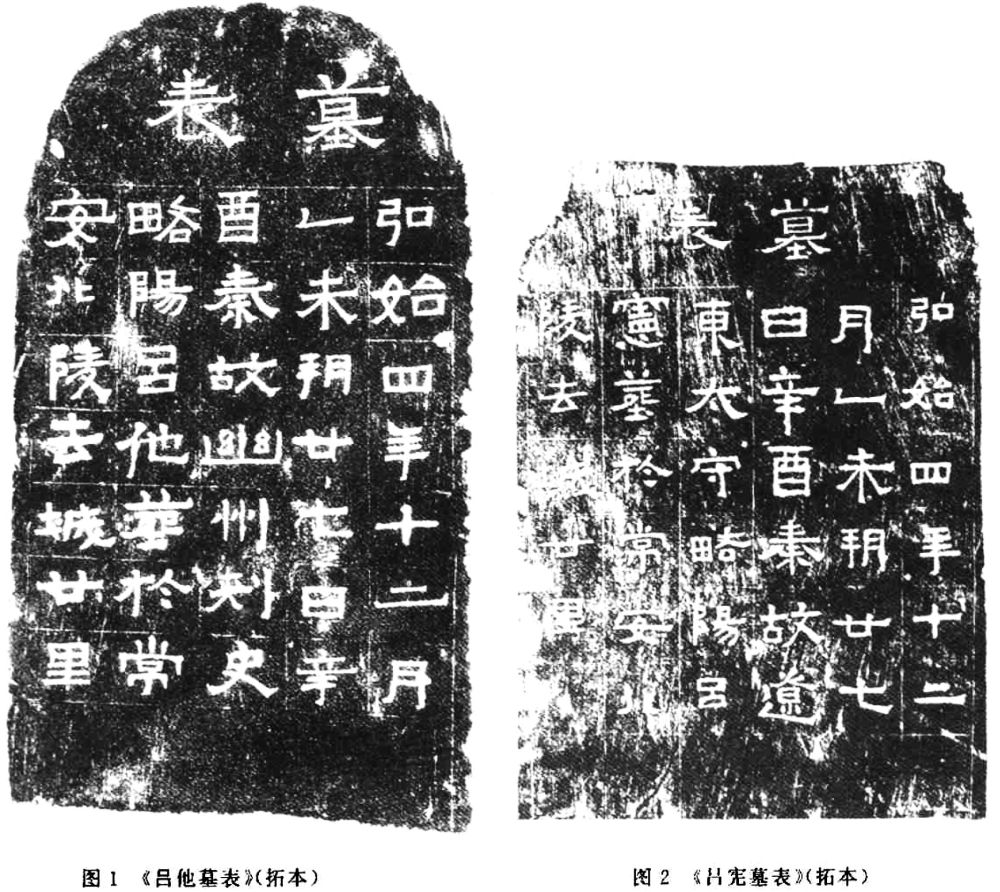 墓表
弘始四年十二月
乙未朔廿七日辛
酉秦故幽州刾史
略陽呂他葬於常
安北陵去城廿里
图1 《吕他墓表》(拓本)
墓表
弘始四年十二
月乙未朔廿七
日辛酉秦故遼
東太守略陽呂
憲葬於常安北
陵去廿里
图2 《吕宪墓表》(拓本)